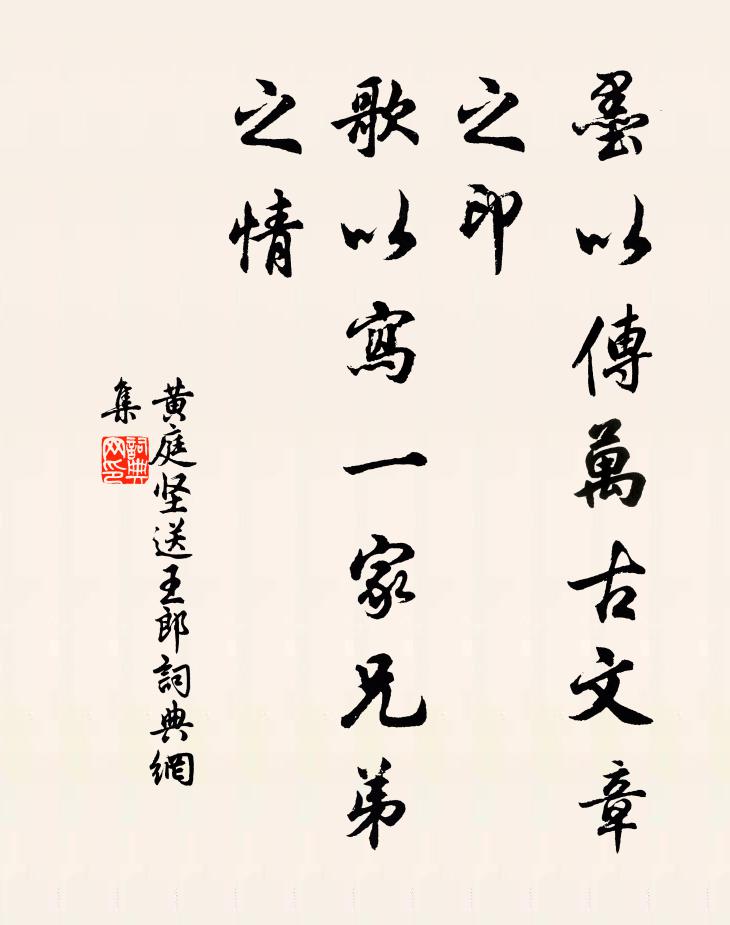 墨以傳萬古文章
之印
歌以寫一家兄弟
之情
黄庭坚送王郎詞典網
集
詞典
网印